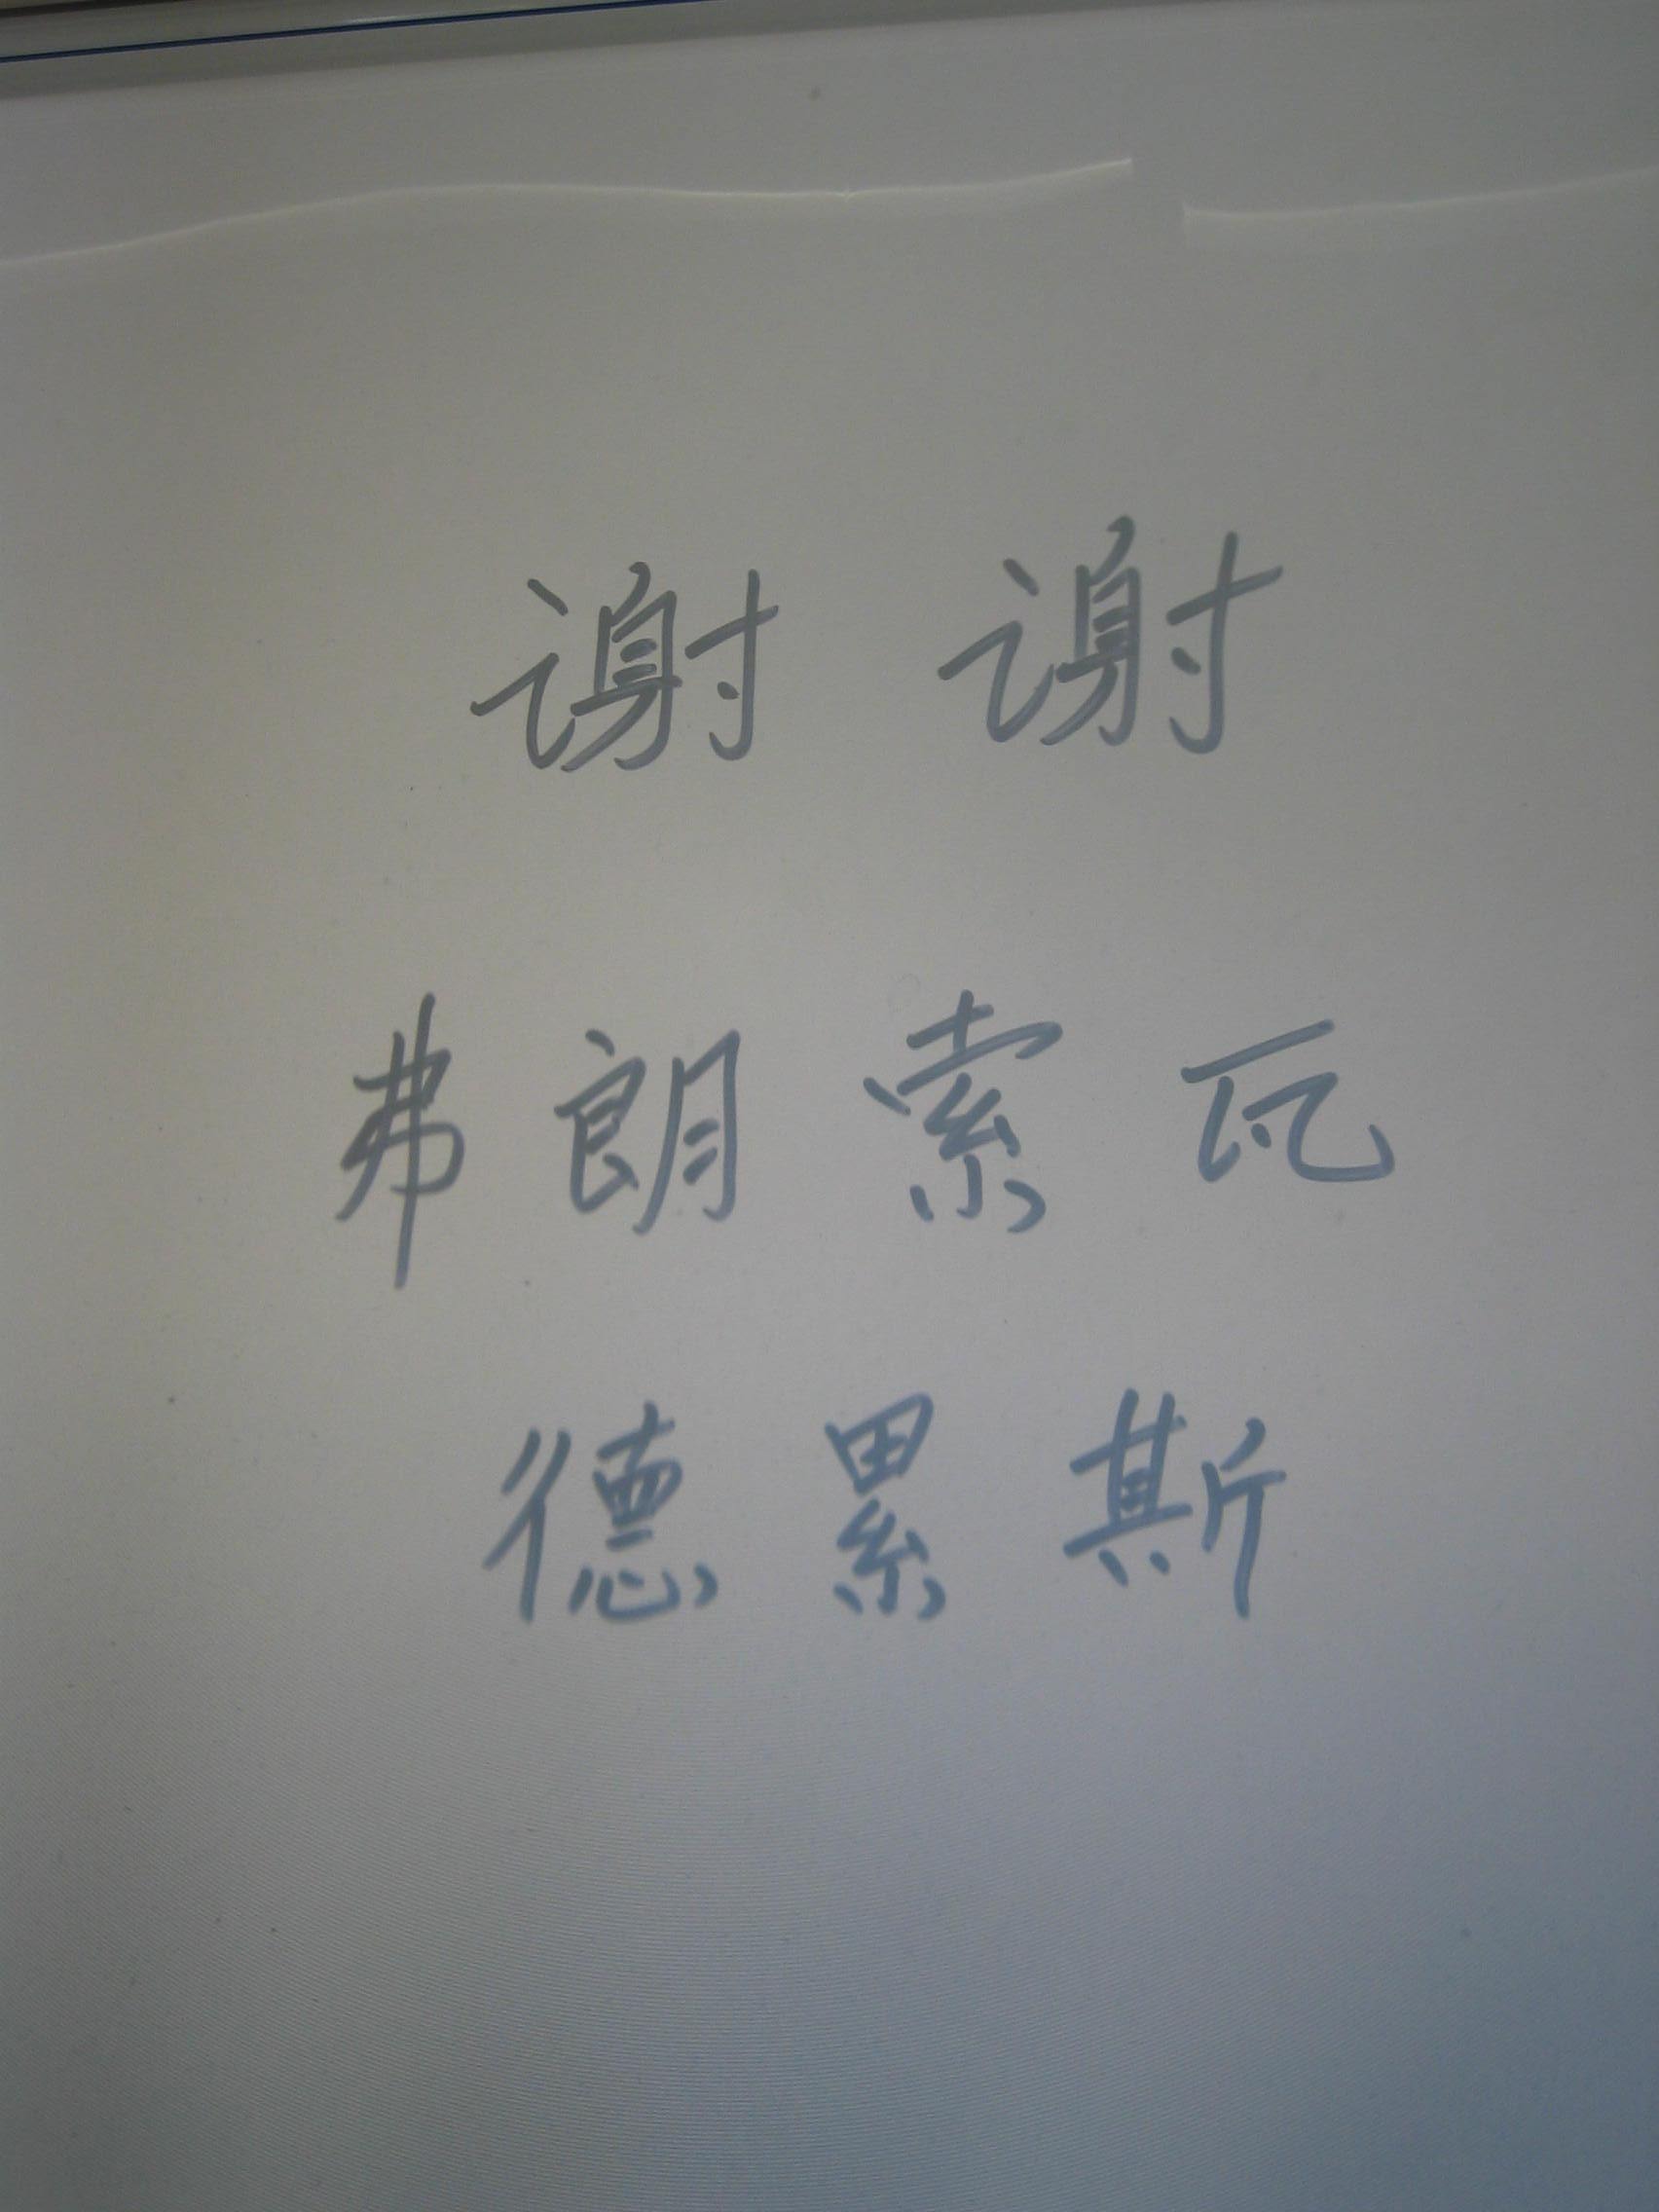 谢谢
弗朗索瓦
德累斯